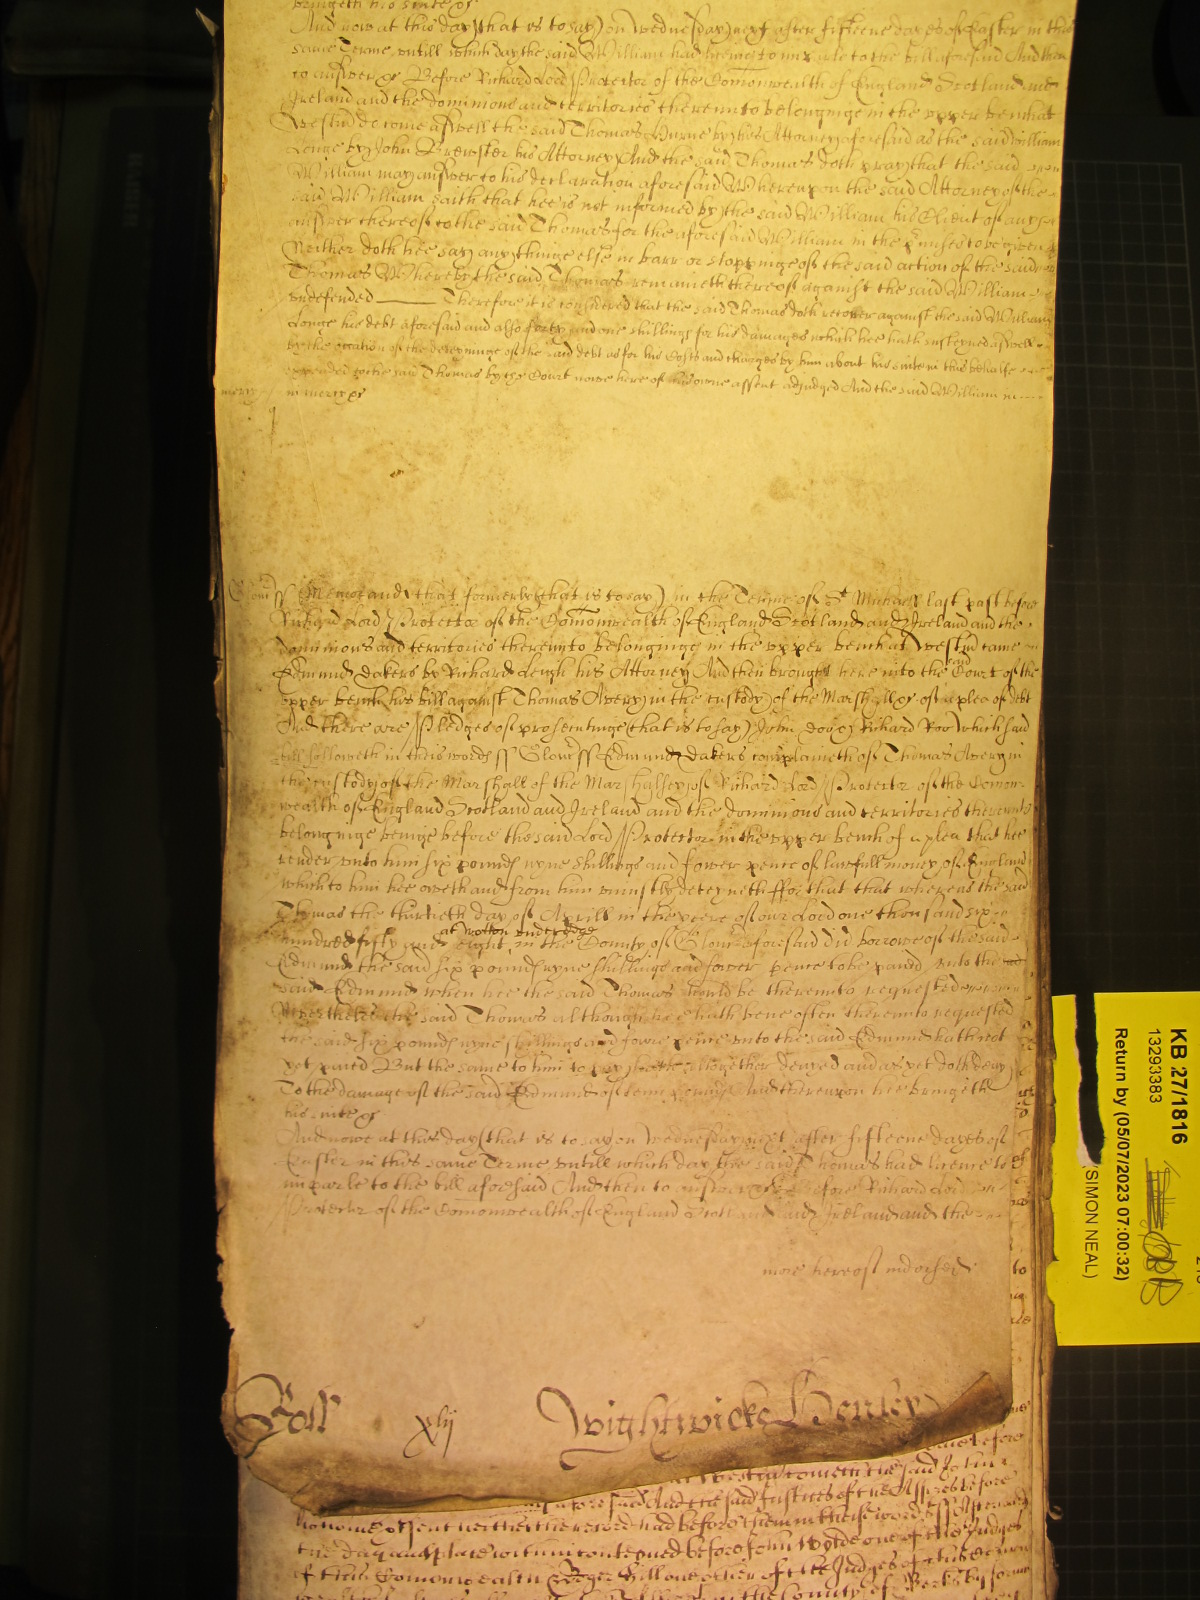 bringeth his suite &c
And now at this day (that is to say) on Wednesday next after fifteene dayes of Easter in this
same Terme untill which day the said William had licence to imparle to the bill aforesaid And then
to answer &c Before Richard Lord Protector of the Comonwealth of England Scotland and
Ireland and the dominions and territories thereunto belonginge in the upper bench at
Westmr do come aswell the said Thomas Burne by his Attorney aforesaid as the said William
Longe by John Brewster his Attorney And the said Thomas doth pray that the said
William may answer to his declaration aforesaid Whereupon the said Attorney of the
said William saith that hee is not informed by the said William his Client of any
answer thereof to the said Thomas for the aforesaid William in the p'misses to be given
Neither doth hee say any thinge else in barr or stoppinge of the said action of the said
Thomas Whereby the said Thomas remaineth thereof against the said William
undefended Therefore it is considered that the said Thomas doth recover against the said William
Longe his debt aforesaid and also forty and one shillings for his damages which hee hath susteyned aswell
by the occation of the deteyninge of the said debt as for his Costs and charges by him about his suite in this behalfe
expended to the said Thomas by the Court nowe here of his owne assent adjudged And the said William in
mercy in mercy &c
Glouc ss Memorand that formerly (that is to say) in the Terme of St Michaell last past before
Richard Lord Protector of the Comonwealth of England Scotland and Ireland and the
dominions and territories thereunto belonginge in the upper bench at Westmr came
Edmund Dakers by Richard Leigh his Attorney And then brought here into the said Court of the
upper bench his bill against Thomas Avery in the custody of the Marshall &c of a plea of debt
And there are Pledges of prosecutinge (that is to say) John Doo & Richard Roo Which said
bill followeth in theis words ss Glouc ss Edmund Dakers complaineth of Thomas Avery in
the custody of the Marshall of the Marshalsey of Richard Lord Protector of the Comon
wealth of England Scotland and Ireland and the dominions and territories thereunto
belonginge beinge before the said Lord Protector in the upper bench of a plea that hee
render unto him six pounds nyne shillings and fower pence of lawfull money of England
which to him hee oweth and from him uniustly deteyneth For that that whereas the said
Thomas the thirtieth day of Aprill in the yeere of our Lord one thousand six
hundred fifty and eight at Wotton underedge in the County of Glouc aforesaid did borrowe of the said
Edmund the said six pounds nyne shillings and fower pence to be payd unto the
said Edmund when hee the said Thomas should be thereunto requested
Neverthelesse the said Thomas although hee hath bene often thereunto requested
the said six pounds nyne shillings and fower pence unto the said Edmund hath not
yet payed But the same to him to pay hath altogether denyed and as yet doth deny
To the damage of the said Edmund of tenn pounds And thereupon hee bringeth
his suite &c
And nowe at this day (that is to say) on Wednesday next after fifteene dayes of
Easter in this same Terme untill which day the said Thomas had licence to
imparle to the bill aforesaid And then to answer &c before Richard Lord
Protector of the Comonwealth of England Scotland and Ireland and the
more hereof indorsed
Roll xlij Wightwicke Henley
aforesaid And the said Justices of the Assizes before
the day and place within conteyned before John Wylde one of the Judges
of this Comonwealth Roger Hill one other of the Judges
in the County of Berks
KB 27/1816
13293383
Return by (05/07/2023 07:00:32)
(SIMON NEAL)